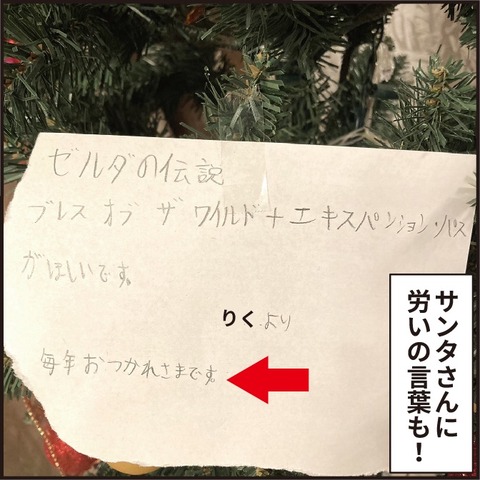 ゼルダの伝説
ブレス オブ ザ ワイルド+エキスパンション・パス
がほしいです。
りくより
毎年おつかれさまです。
サンタさんに
労いの言葉も!